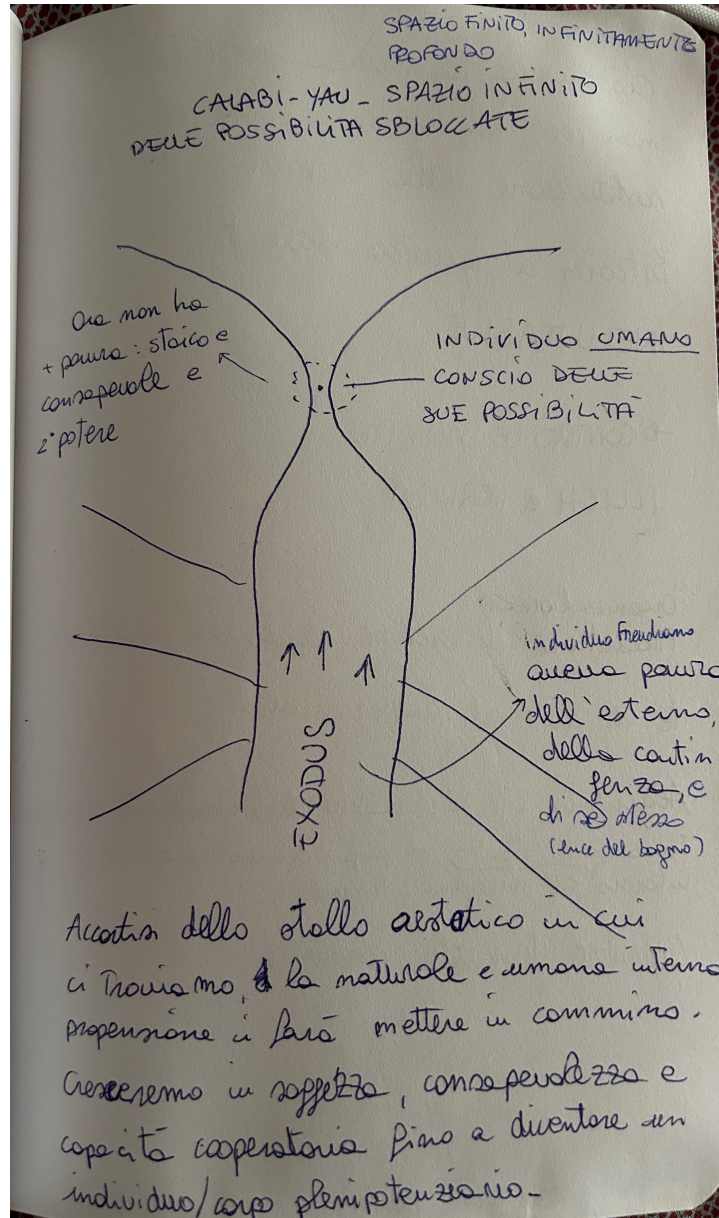 SPAZIO FINITO, INFINITAMENTE
PROFONDO
CALABI-YAU - SPAZIO INFINITO
DELLE POSSIBILITÀ SBLOCCATE
Ora non ha
+ paura: stoico e
consapevole e
potere
INDIVIDUO UMANO
CONSCIO DELLE
SUE POSSIBILITÀ
individuo Freudiano
aveva paura
dell'esterno,
della contin
genza, e
di sè stesso
(luce del bagno)
EXODUS
Accortisi dello stallo in cui
ci troviamo, la naturale e umana interna
propensione ci farà mettere in cammino.
Cresceremo in saggezza, consapevolezza e
capacità cooperatoria fino a diventare un
individuo/corpo plenipotenziario-